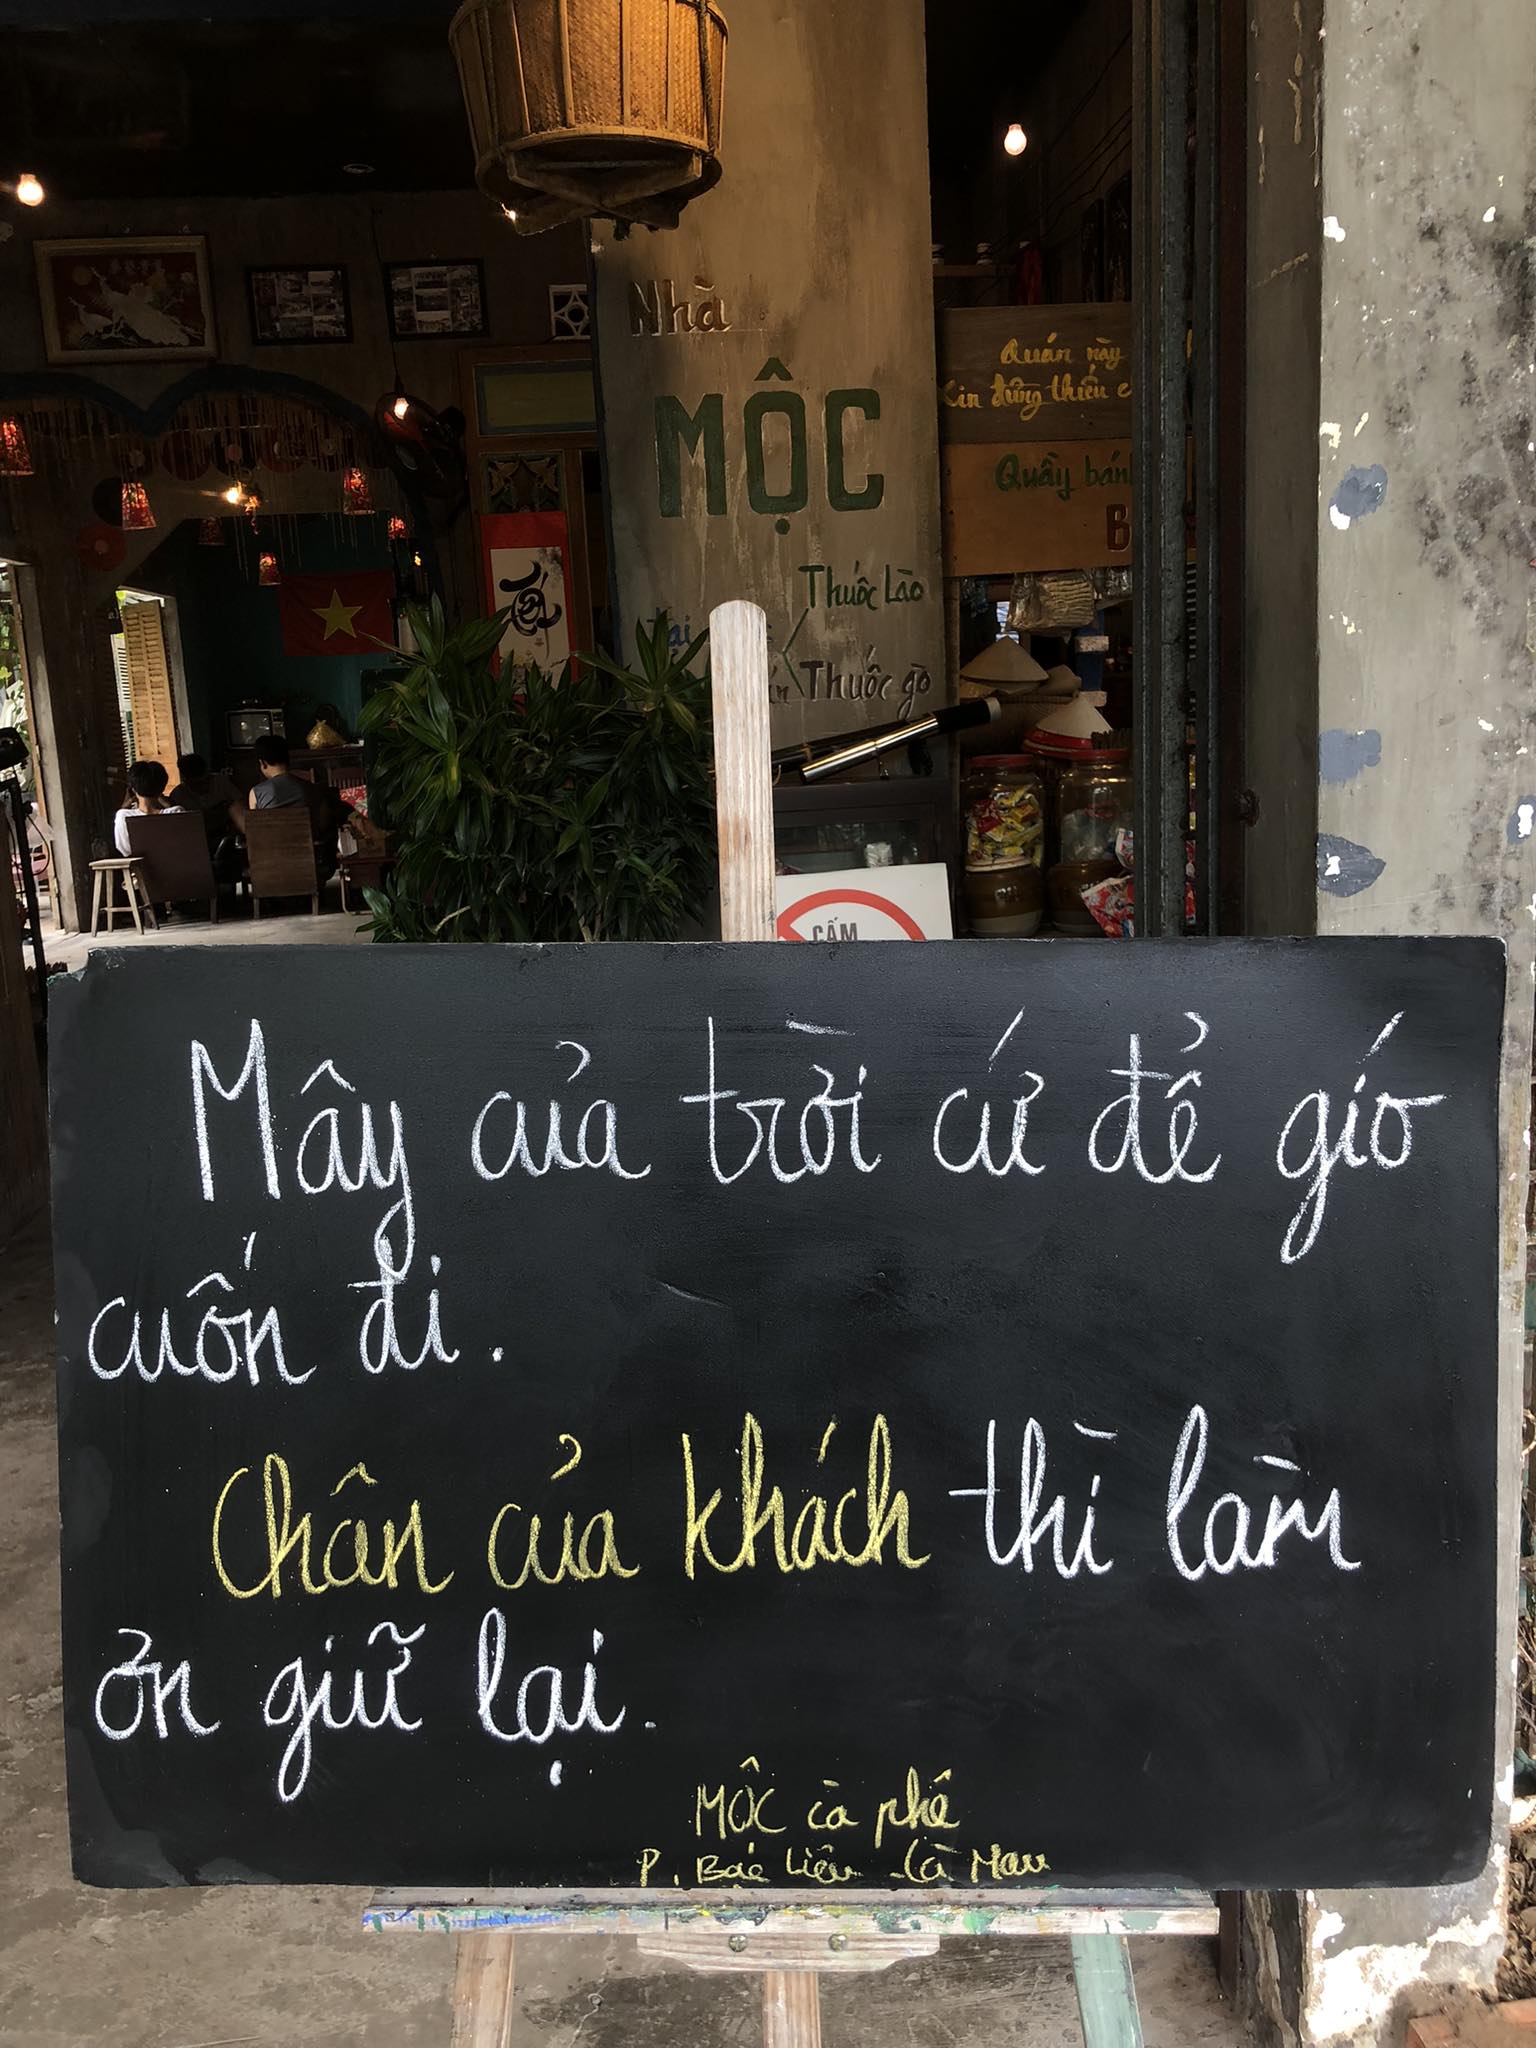 Nhà
MỘC
Quán này
Xin đừng thiếu
Quầy bánh
B
Thuốc Lào
Thuốc gò
CẤM
Mây của trời cứ để gió
cuốn đi.
Chân của khách thì làm
ơn giữ lại.
MỘC cà phê
P. Bạc Liêu - Cà Mau